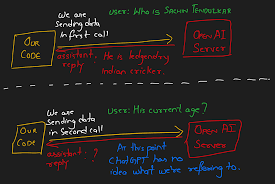 We are
sending data
in first call
User: Who is Sachin Tendulkar
Our
Code
Open AI
Server
assistant: He is legendry
reply
Indian cricker.
We are
sending data
in Second call
User: His current age?
Our
Code
Open AI
Server
assistant: ?
reply
At this point
ChatGPT has no
idea what we're refering to.